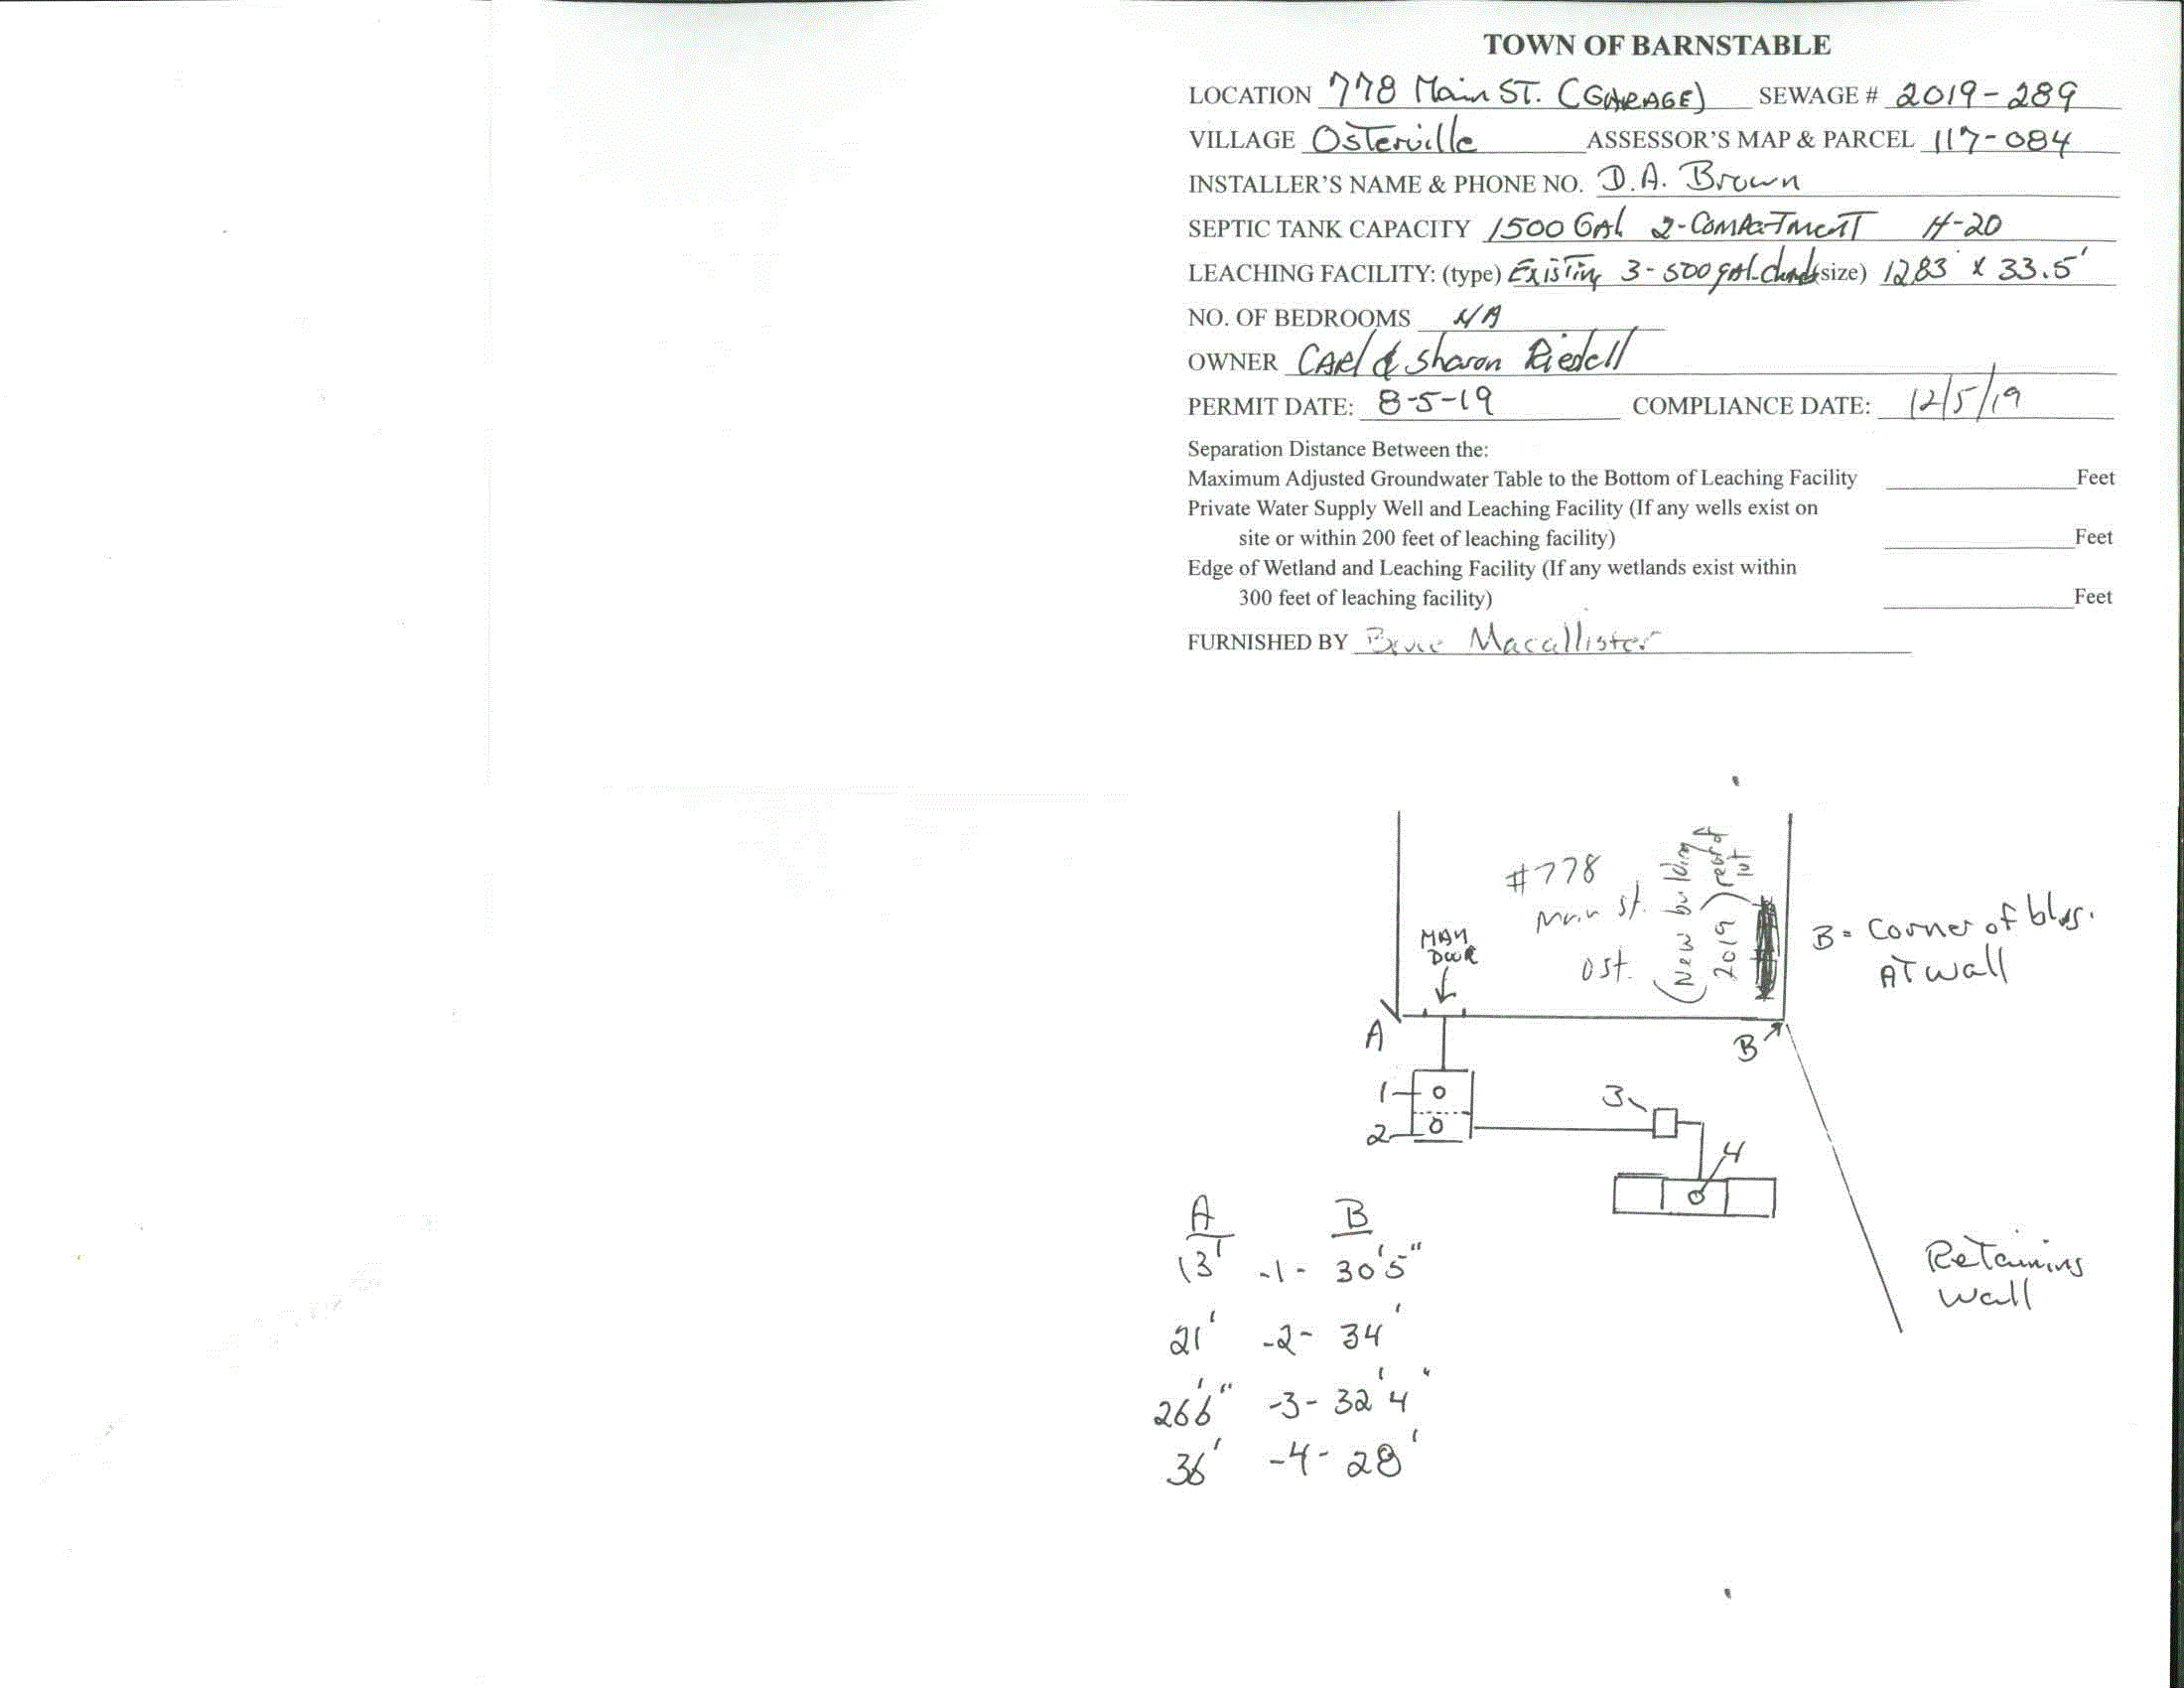 TOWN OF BARNSTABLE
LOCATION 778 Main ST. (GARAGE) SEWAGE # 2019-289
VILLAGE Osterville ASSESSOR'S MAP & PARCEL 117-084
INSTALLER'S NAME & PHONE NO. D.A. Brown
SEPTIC TANK CAPACITY 1500 GAL 2-COMPARTMENT H-20
LEACHING FACILITY: (type) Existing 3-500 gal. (size) 12.83' x 33.5'
NO. OF BEDROOMS N/A
OWNER CARl & Sharon Riedell
PERMIT DATE: 8-5-19 COMPLIANCE DATE: 12/5/19
Separation Distance Between the:
Maximum Adjusted Groundwater Table to the Bottom of Leaching Facility Feet
Private Water Supply Well and Leaching Facility (If any wells exist on
site or within 200 feet of leaching facility) Feet
Edge of Wetland and Leaching Facility (If any wetlands exist within
300 feet of leaching facility) Feet
FURNISHED BY Bruce Macallister
#778
Main St.
Ost.
(New building
2019) rear of
lot
MAN
DOOR
B = Corner of bldg.
AT wall
A
B
1
2
3
4
Retaining
wall
A B
13' -1- 30'5"
21' -2- 34'
26'6" -3- 32'4"
36' -4- 28'